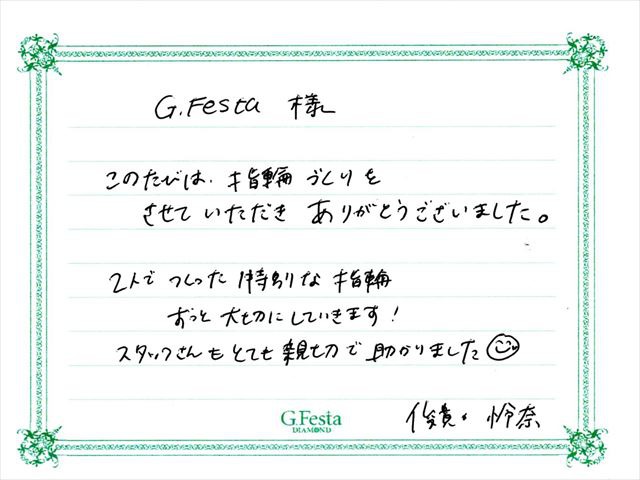 G.Festa 様
このたびは、指輪づくりを
させていただきありがとうございました。
2人でつくった特別な指輪
ずっと大切にしていきます!
スタッフさんもとても親切で助かりました
G.Festa
DIAMOND
俊貴・怜奈